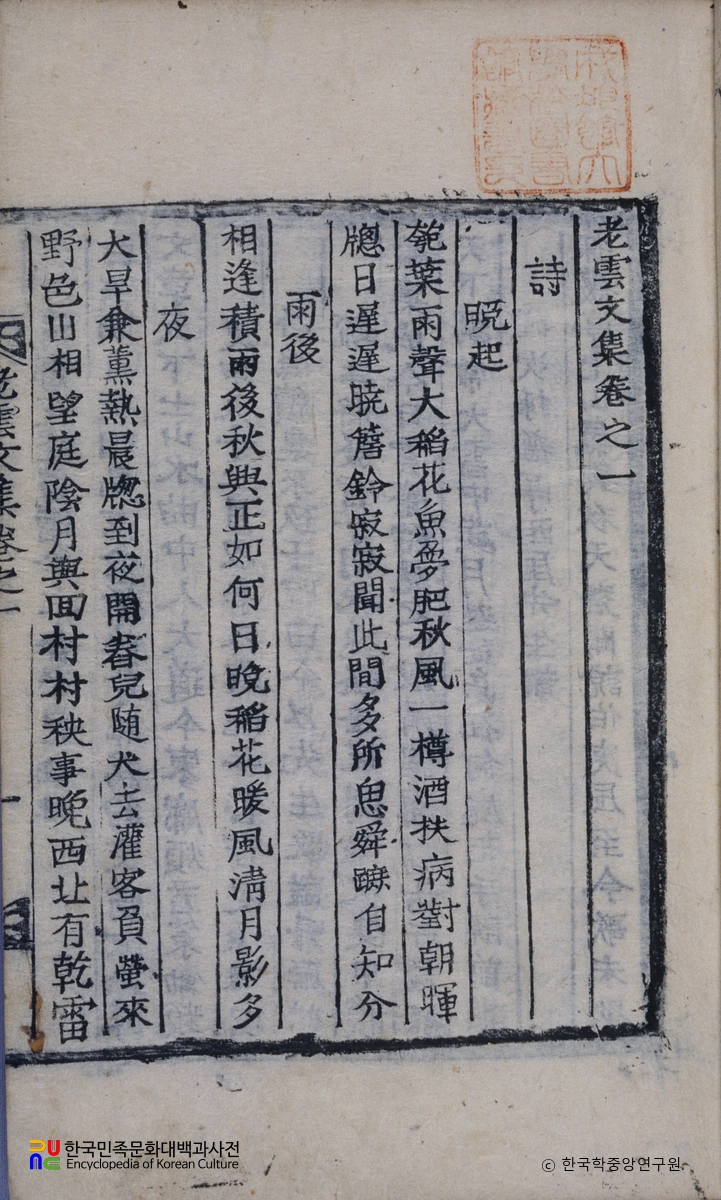 老雲文集卷之一
詩
晩起
匏葉雨聲大稻花魚夢肥秋風一樽酒扶病對朝暉
牕日遲遲暁簷鈴寂寂聞此間多所思舜蹠自知分
雨後
相逢積雨後秋興正如何日晩稻花暖風淸月影多
夜
大旱兼薰熱晨牕到夜開春兒随犬去灌客負螢來
野色山相望庭陰月與回村村秧事晩西北有乾雷
老雲文集卷之一
一
한국민족문화대백과사전
Encyclopedia of Korean Culture
ⓒ 한국학중앙연구원